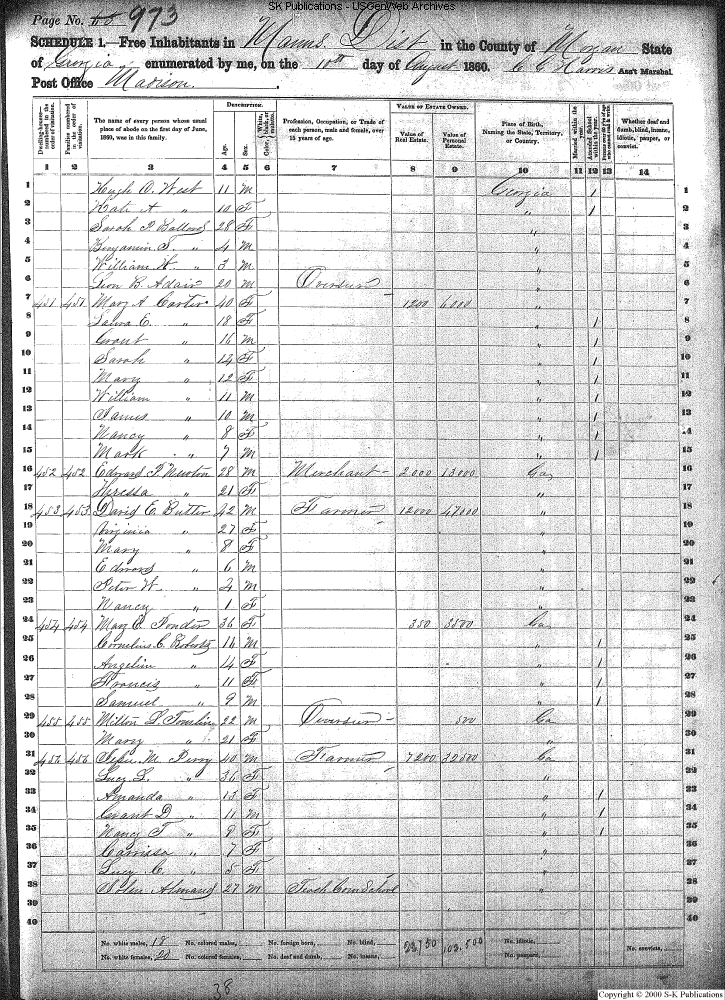 SK Publications - USGenWeb Archives
Page No. 973
SCHEDULE 1.—Free Inhabitants in Manns Dist in the County of Morgan State
of Georgia enumerated by me, on the 10th day of August 1860. C C Harris Ass't Marshal.
Post Office Madison.
Dwelling-houses numbered in the order of visitation. Families numbered in the order of visitation. The name of every person whose usual place of abode on the first day of June, 1860, was in this family. DESCRIPTION. Age. Sex. Color, White, black, or mulatto. Profession, Occupation, or Trade of each person, male and female, over 15 years of age. VALUE OF ESTATE OWNED. Value of Real Estate. Value of Personal Estate. Place of Birth, Naming the State, Territory, or Country. Married within the year. Attended School within the year. Whether deaf and dumb, blind, insane, idiotic, pauper, or convict.
1 2 3 4 5 6 7 8 9 10 11 12 13 14
1 Hugh O. West 11 M Georgia / 1
2 Kate A " 10 F " / 2
3 Sarah P. 28 F " 3
4 Benjamin S. " 4 M " 4
5 William H. " 3 M " 5
6 Leon B. Adair 20 M Overseer " 6
7 451 451 Mary A Carter 40 F 1200 6000 " 7
8 Laura E. " 18 F " / 8
9 Grant " 16 M " / 9
10 Sarah " 14 F " / 10
11 Mary " 12 F " / 11
12 William " 11 M " / 12
13 James " 10 M " / 13
14 Nancy " 8 F " / 14
15 Mark " 7 M " / 15
16 452 452 Edward P. Newton 28 M Merchant 2000 13000 Ga 16
17 " 21 F " 17
18 453 453 David E. Butler 42 M Farmer 12000 47000 " 18
19 Virginia " 27 F " 19
20 Mary " 8 F " 20
21 Edward " 6 M " 21
22 Peter W. " 2 M " 22
23 Nancy " 1 F " 23
24 454 454 Mary C. Ponder 36 F 350 3500 Ga 24
25 Cornelius C. Roberts 16 M " / 25
26 Angelin " 14 F " / 26
27 Francis " 11 F " / 27
28 Samuel " 9 M " / 28
29 455 455 Milton L. Tomlin 22 M Overseer 500 Ga 29
30 Mary " 21 F " 30
31 456 456 M. Perry 40 M Farmer 7200 32500 Ga 31
32 Lucy L. " 36 F " 32
33 Amanda " 13 F " / 33
34 Grant D " 11 M " / 34
35 Nancy T " 9 F " / 35
36 " 7 F " 36
37 Lucy C. " 5 F " 37
38 Almand 27 M Teach Com School " 38
39 39
40 40
No. white males, 18 No. colored males, No. foreign born, No. blind, No. idiotic,
No. white females, 20 No. colored females, No. deaf and dumb, No. insane, No. paupers, No. convicts,
38
Copyright © 2000 S-K Publications